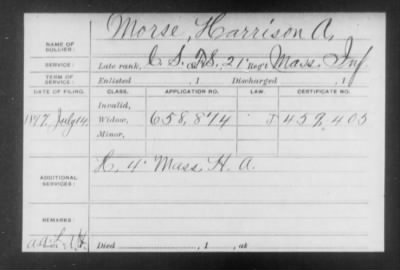 NAME OF SOLDIER: Morse, Harrison A.
SERVICE: Late rank, , 21" Reg't Mass. Inf
TERM OF SERVICE: Enlisted , 1 Discharged , 1
DATE OF FILING. CLASS. APPLICATION NO. LAW. CERTIFICATE NO.
Invalid,
1897, July 14, Widow, 658,814 " J 459,403
Minor,
ADDITIONAL SERVICES: H, 4" Mass, H. A.
REMARKS:
Died , 1 , at